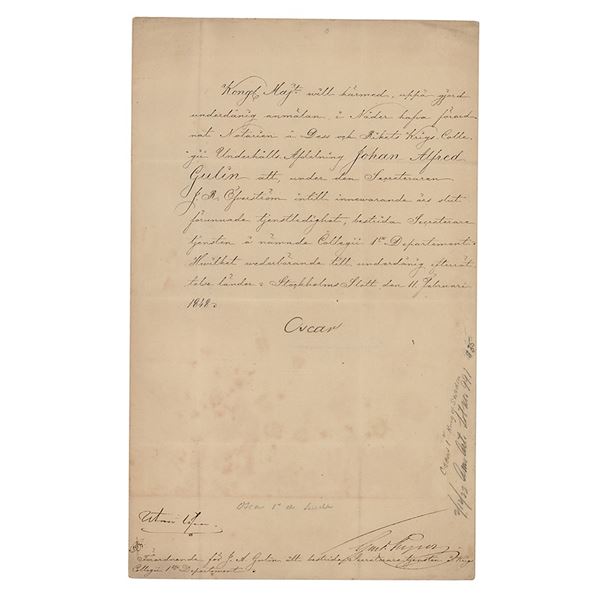 Kongl Majt. will härmed, uppå gjord
underdånig anmälan, i Nåder hafva förord-
nat Notarien i Dess och Rikets Krigs Colle-
gii Underhålls Afdelning Johan Alfred
Gulin att, under den Secreteraren
J. R. Öfverström intill innewarande års slut
förunnade tjenstledighet, bestrida Secreterare
tjensten å nämnde Collegii 1ste Departement.
Hwilket wederbörande till underdånig efterrät-
telse länder. Stockholms Slott den 11 Februari
1848.
Oscar
Oscar 1st King of Sweden
Oscar 1st de Suède
Förordnande för J. A. Gulin att bestrida Secreterare tjensten i Krigs
Collegii 1ste Departement